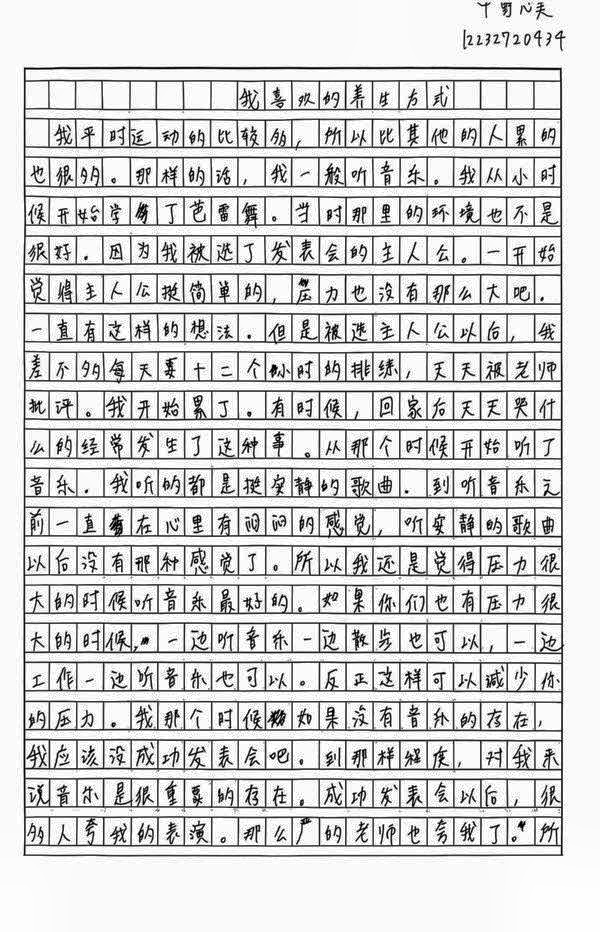 12232720434
我喜欢的养生方式
我平时运动的比较多，所以比其他的人累的
也很多。那样的话，我一般听音乐。我从小时
候开始学了芭雷舞。当时那里的环境也不是
很好。因为我被选了发表会的主人公。一开始
觉得主人公挺简单的，压力也没有那么大吧。
一直有这样的想法。但是被选主人公以后，我
差不多每天要十二个小时的排练，天天被老师
批评。我开始累了。有时候，回家后天天哭什
么的经常发生了这种事。从那个时候开始听了
音乐。我听的都是挺安静的歌曲。到听音乐之
前一直在心里有闷闷的感觉，听安静的歌曲
以后没有那种感觉了。所以我还是觉得压力很
大的时候听音乐最好的。如果你们也有压力很
大的时候，一边听音乐一边散步也可以，一边
工作一边听音乐也可以。反正这样可以减少你
的压力。我那个时候如果没有音乐的存在，
我应该没成功发表会吧。到那样程度，对我来
说音乐是很重要的存在。成功发表会以后，很
多人夸我的表演。那么严的老师也夸我了。所